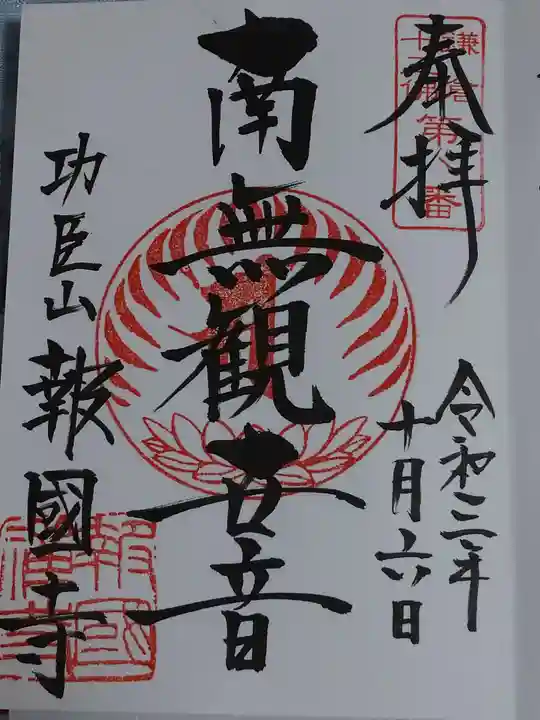 奉拝
鎌倉
十三佛
第八番
令和三年
十月六日
南無観世音
功臣山
報國寺
報國
禪寺